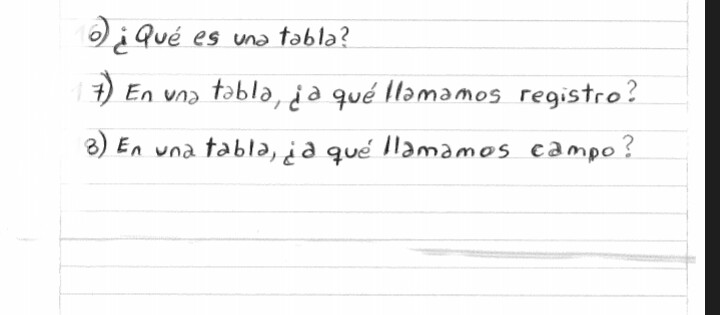 6) ¿Qué es una tabla?
7) En una tabla, ¿a qué llamamos registro?
8) En una tabla, ¿a qué llamamos campo?